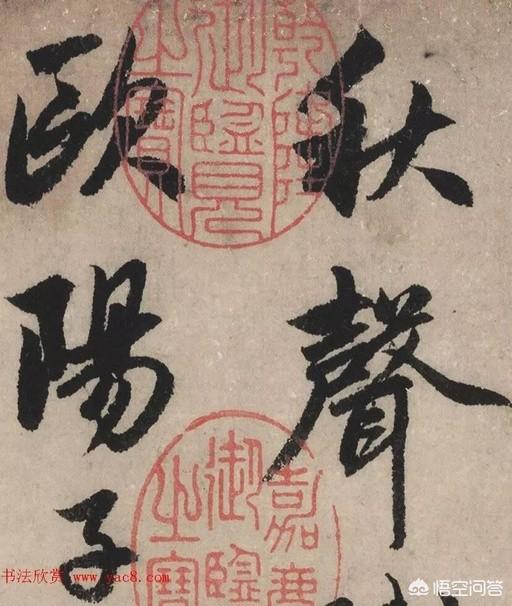 秋聲
歐陽子
乾隆御覽之寶
嘉慶御覽之寶
书法欣赏 www.yac8.
悟空问答